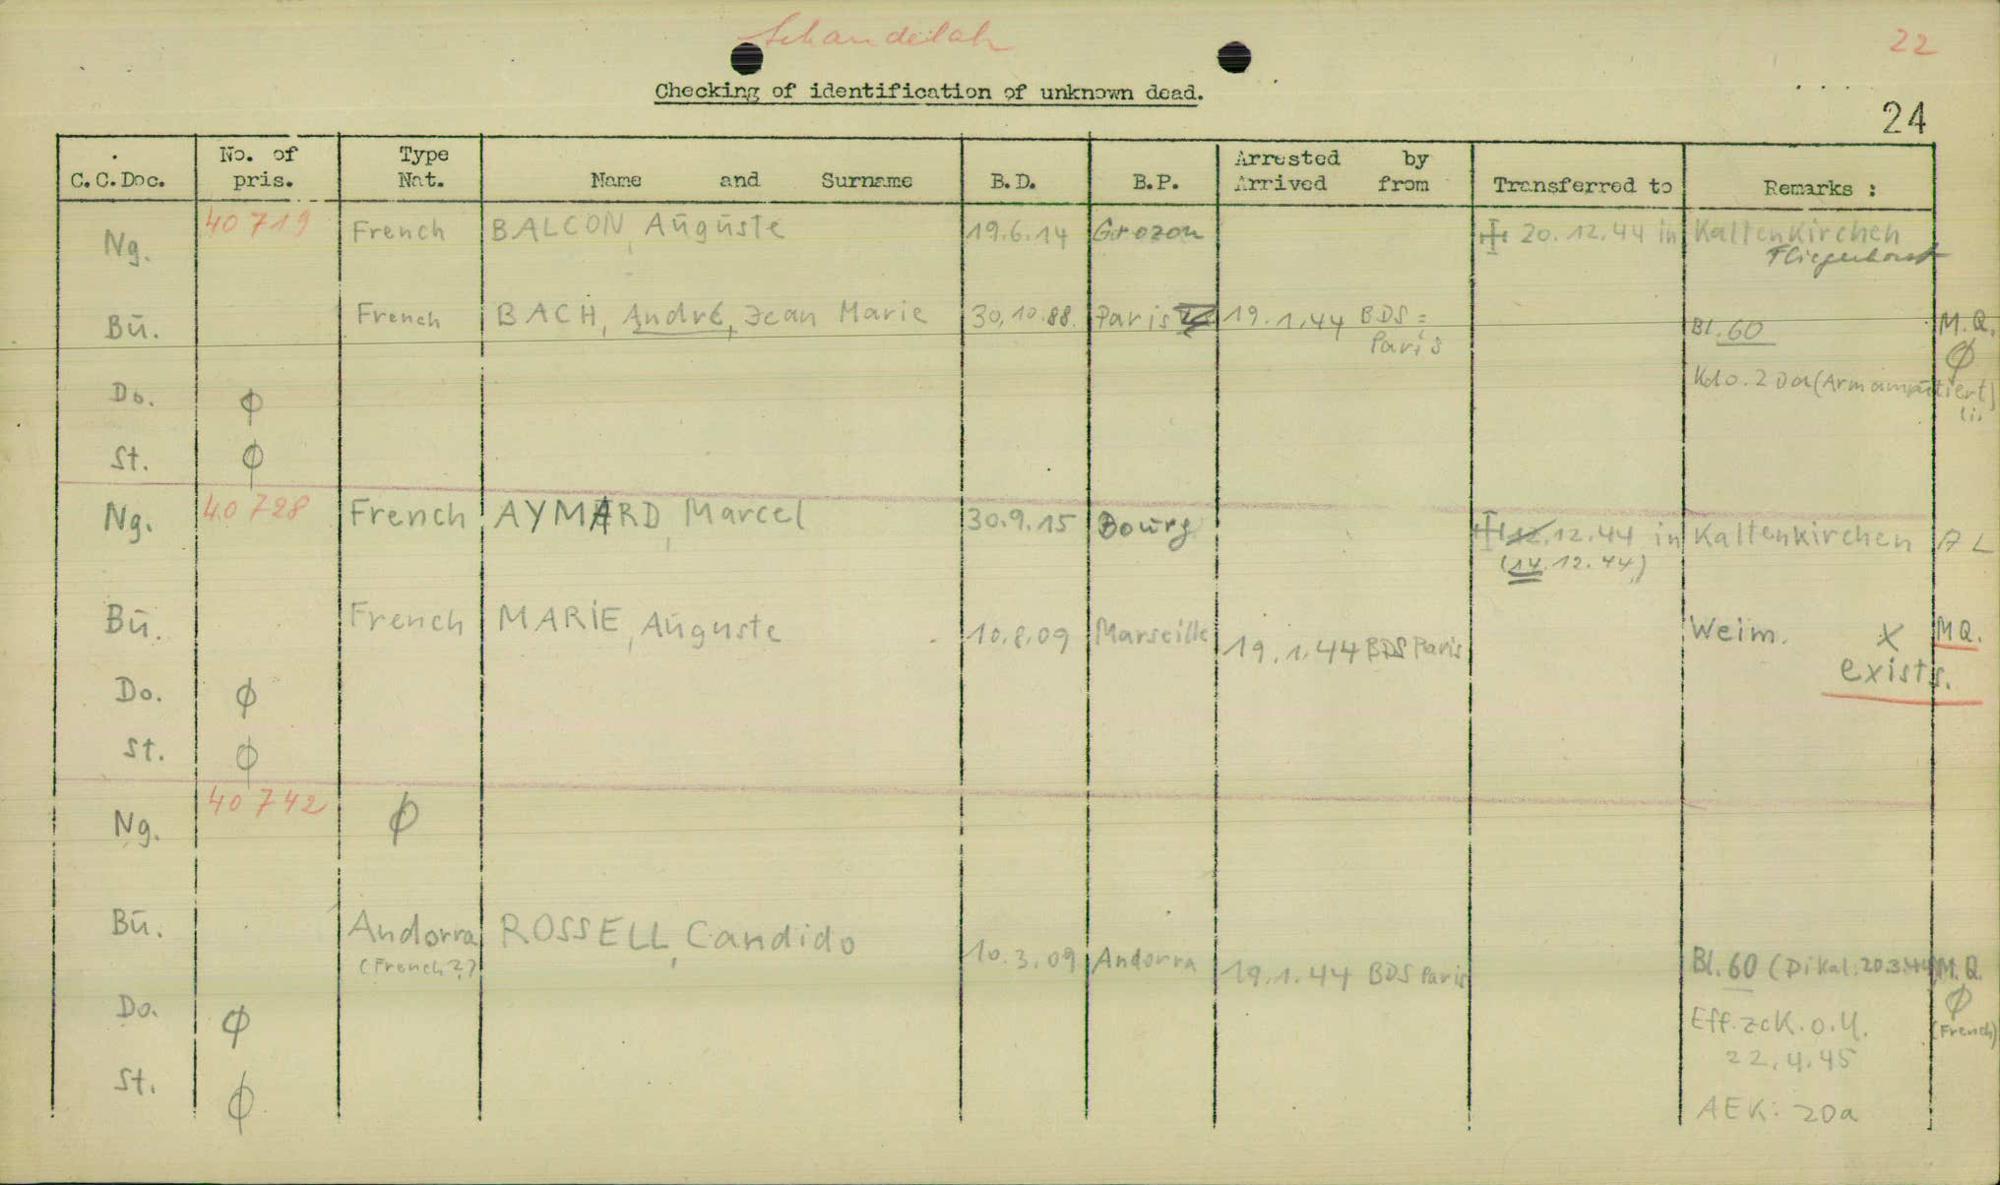 Schandelah
22
Checking of identification of unknown dead.
24
C.C.Doc. No. of pris. Type Nat. Name and Surname B.D. B.P. Arrested by Arrived from Transferred to Remarks :
Ng. 40 719 French BALCON, Auguste 19.6.14 Grozon ☩ 20.12.44 in Kaltenkirchen
Fliegerhorst
Bü. French BACH, André, Jean Marie 30.10.88. Paris 19.1.44 BDS = Paris Bl. 60 M.Q.
Ø
Do. Ø Kdo. 2 Da (Armamputiert)
St. Ø
Ng. 40 728 French AYMARD, Marcel 30.9.15 Bourg ☩ 12.12.44 in Kaltenkirchen A L
(14.12.44)
Bü. French MARIE, Auguste 10.8.09 Marseille 19.1.44 BDS Paris Weim. X MQ.
exists.
Do. Ø
St. Ø
Ng. 40 742 Ø
Bü. Andorra ROSSELL, Candido 10.3.09 Andorra 19.1.44 BDS Paris Bl. 60 (Dikal. 20.3.44) M.Q.
(French?) Ø
(French)
Do. Ø Eff. zck. o.U.
22.4.45
St. Ø AEK: 20a